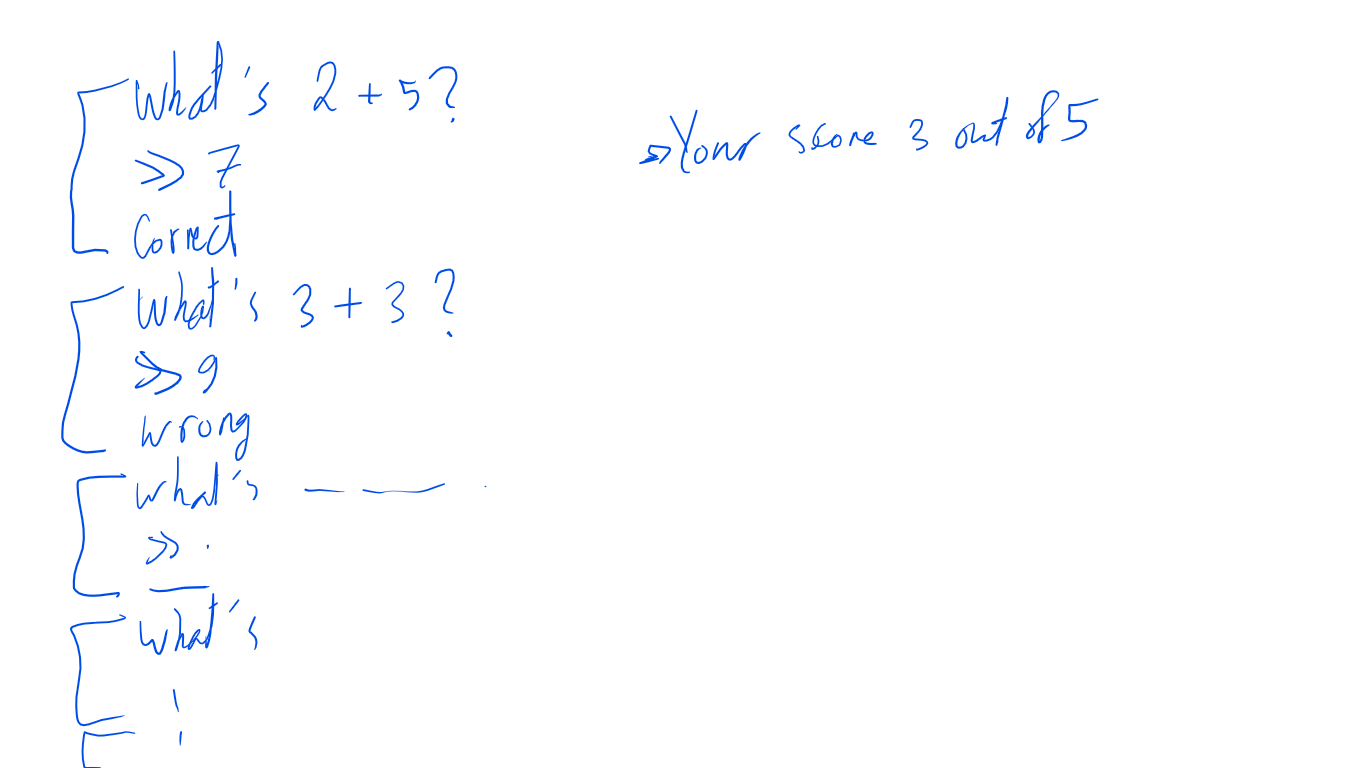 What's 2 + 5?
>> 7
Correct
What's 3 + 3 ?
>> 9
wrong
what's
>> .
what's
Your score 3 out of 5